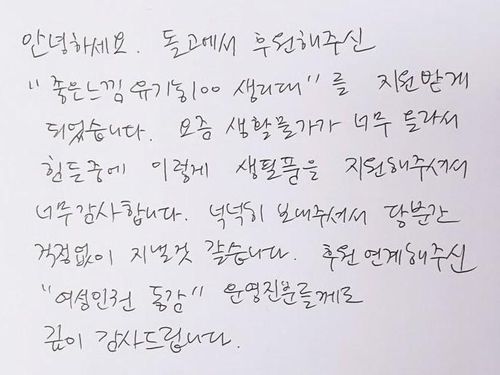 안녕하세요. 돌고에서 후원해주신
"좋은느낌 유기농100 생리대"를 지원받게
되었습니다. 요즘 생활물가가 너무 올라서
힘든중에 이렇게 생필품을 지원해주셔서
너무감사합니다. 넉넉히 보내주셔서 당분간
걱정없이 지낼것 같습니다. 후원연계해주신
"여성인권 동감" 운영진분들께도
깊이 감사드립니다.